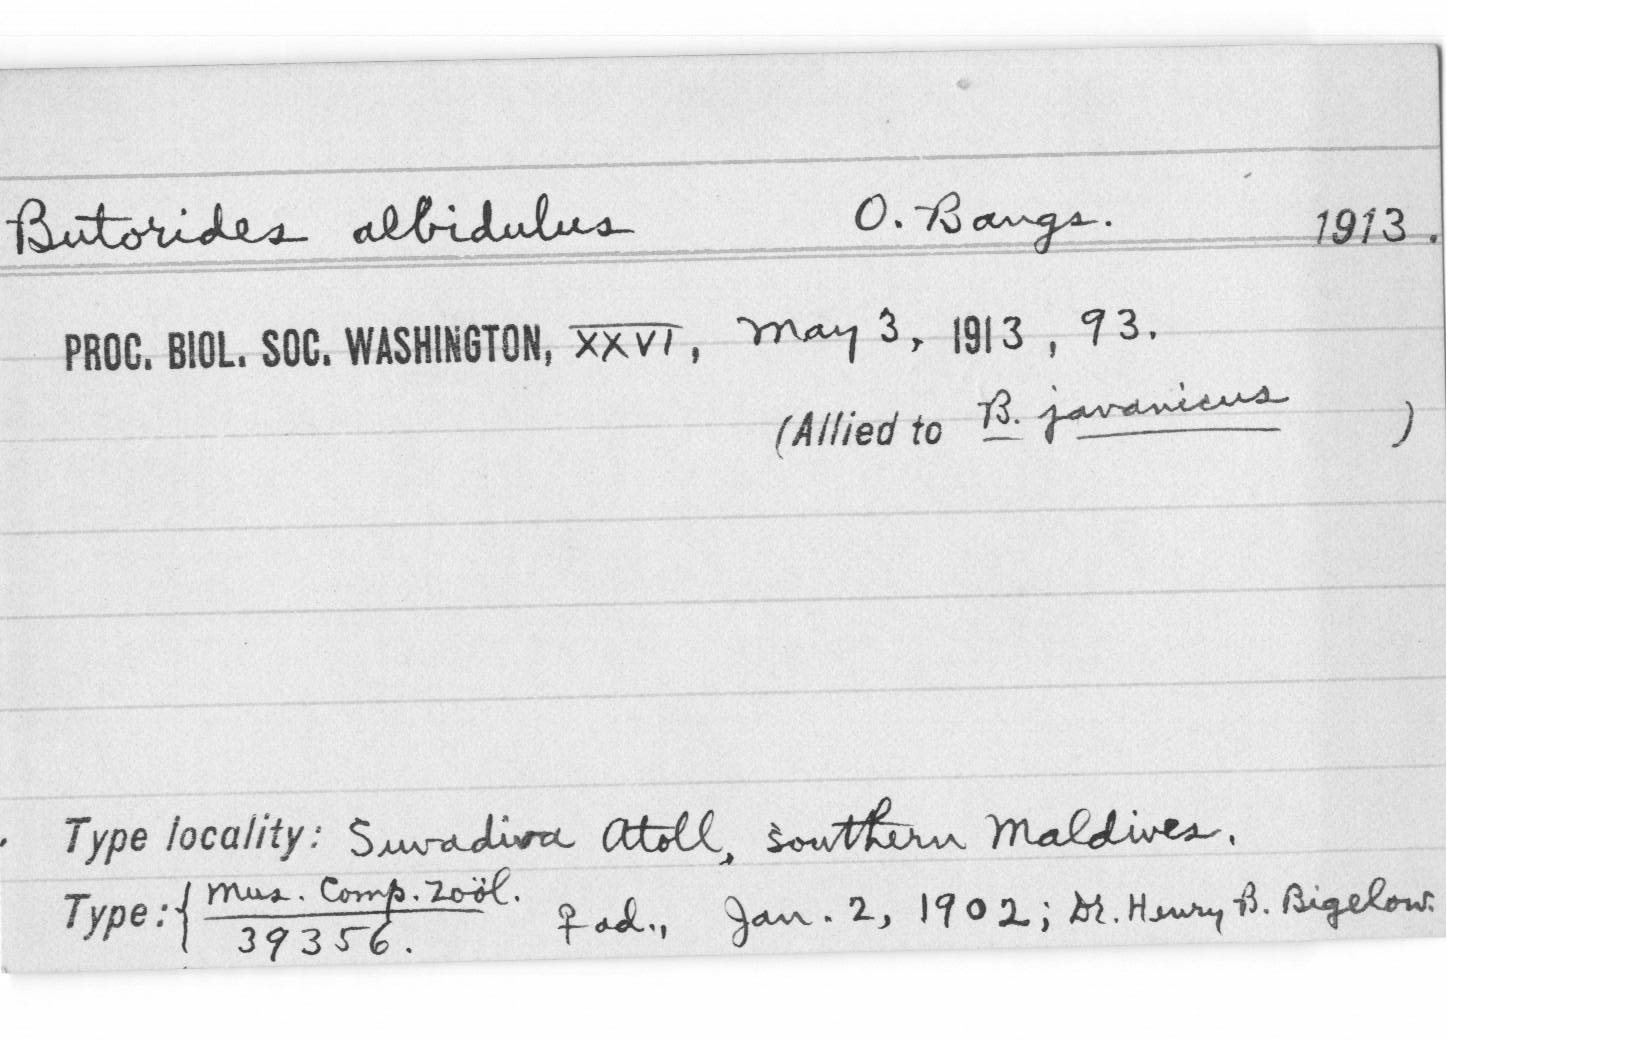 Butorides albidulus O. Bangs. 1913.
PROC. BIOL. SOC. WASHINGTON, XXVI, May 3, 1913, 93.
(Allied to B. javanicus )
Type locality: Suvadiva Atoll, southern Maldives.
Type: { Mus. Comp. Zoöl. ♀ ad., Jan. 2, 1902; Dr. Henry B. Bigelow.
39356.